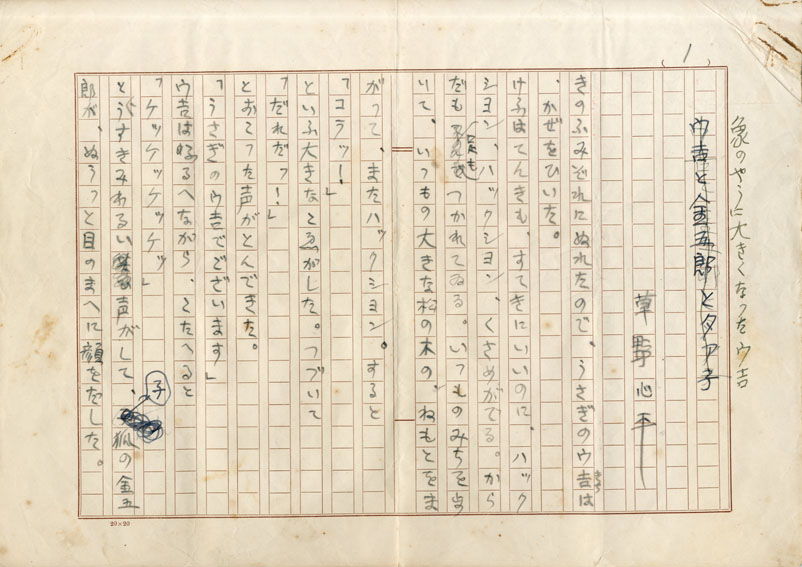 1
象のやうに大きくなつたウ吉
ウ吉と金五郎とタア子
草野心平
きのふみぞれにぬれたので、うさぎのウ吉は
きち
、かぜをひいた。
けふはてんきも、すてきにいいのに、ハック
シヨン、ハックシヨン、くさめがでる。から
だも つかれてゐる。いつものみちを歩
いて、いつもの大きな松の木の、ねもとをま
がつて、またハックシヨン。すると
「コラッ！」
といふ大きなこゑがした。つづいて
「だれだッ！」
とおこつた声がとんできた。
「うさぎのウ吉でございます」
ウ吉は ふるへながら、こたへると
「ケッケッケッケッ」
とうすきみわるい 声がして、子狐の金五
郎が、ぬうつと目のまへに顔をだした。
20×20